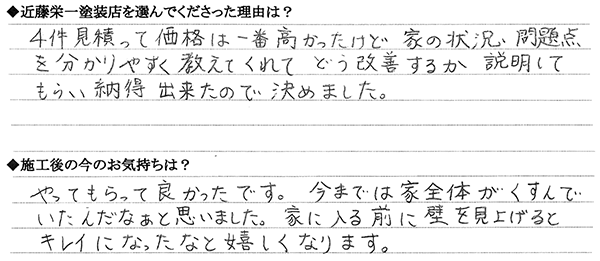 ◆近藤栄一塗装店を選んでくださった理由は？
4件見積って価格は一番高かったけど 家の状況、問題点
を分かりやすく教えてくれて どう改善するか 説明して
もらい、納得 出来たので 決めました。
◆施工後の今のお気持ちは？
やってもらって良かったです。 今までは家全体がくすんで
いたんだなぁと思いました。家に入る前に壁を見上げると
キレイになったなと嬉しくなります。